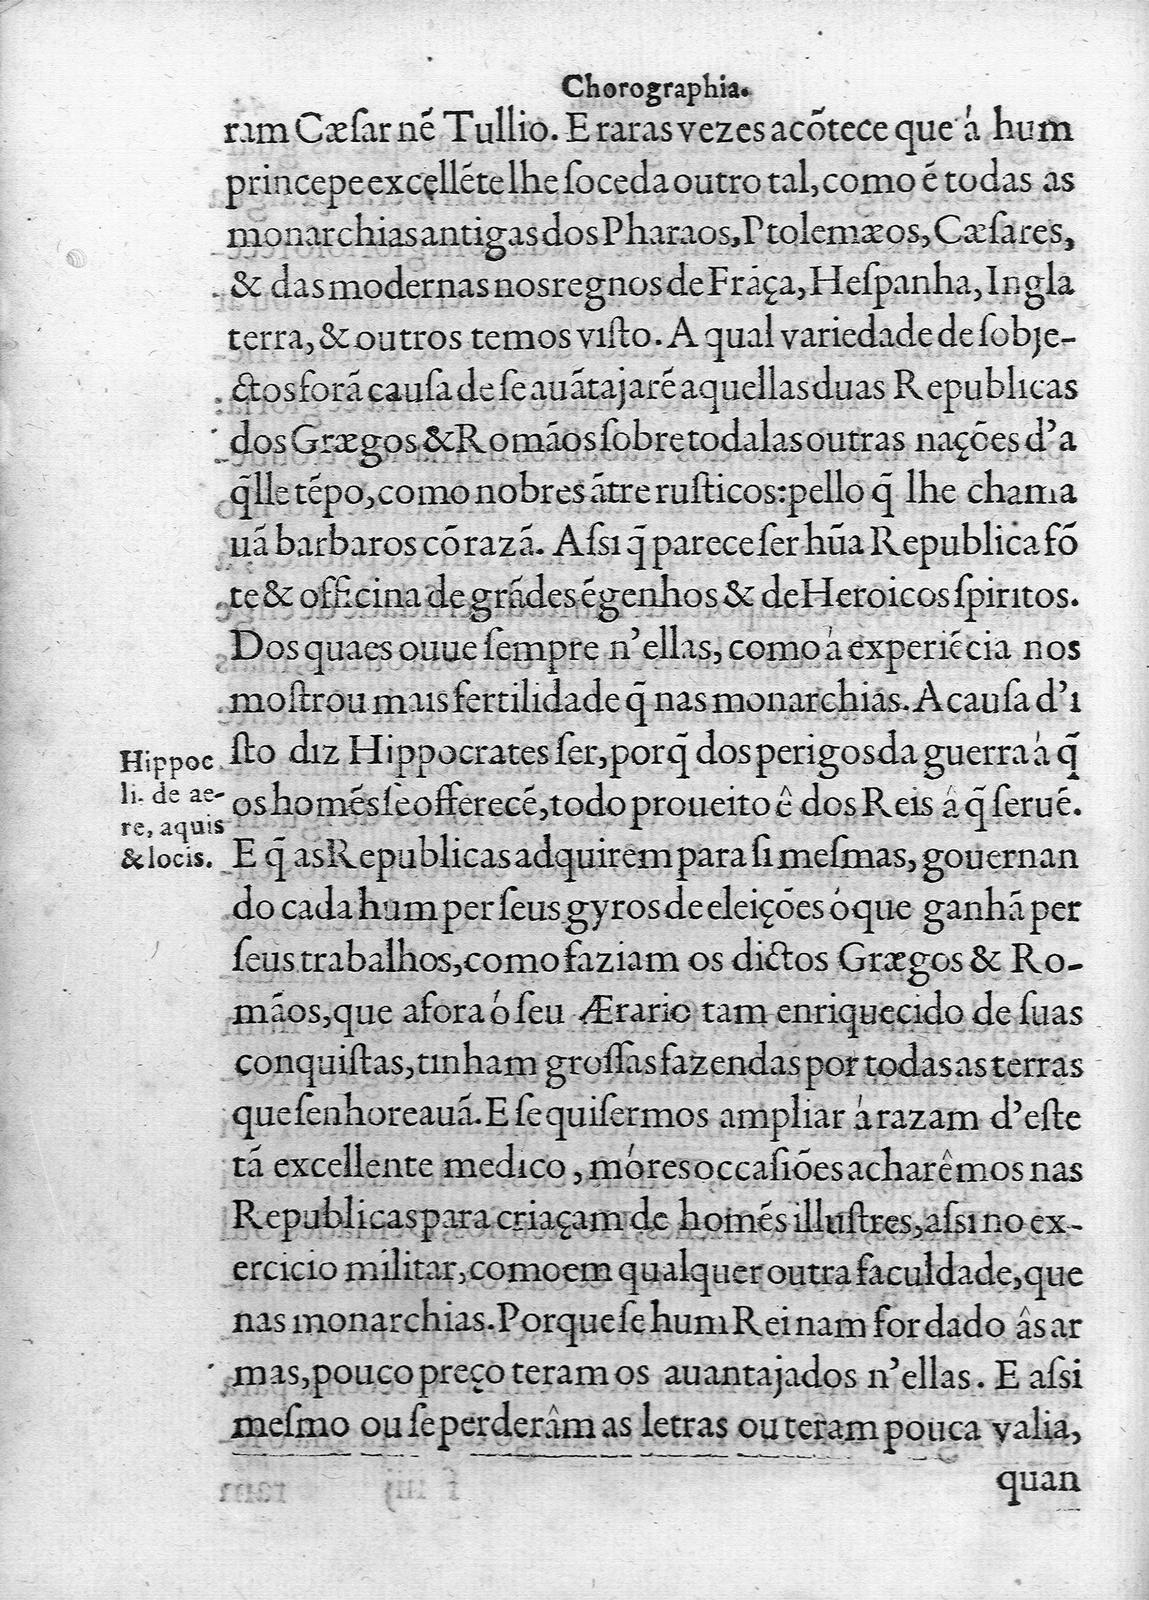 Chorographia.
ram Cæſar nẽ Tullio. E raras vezes acõtece que á hum
princepe excęllẽte lhe ſoceda outro tal, como ẽ todas as
monarchias antigas dos Pharaos, Ptolemæos, Cæſares,
& das modernas nos regnos de Frãça, Heſpanha, Ingla
terra, & outros temos viſto. A qual variedade de ſobje-
ctos forã cauſa de ſe auãtajarẽ aquellas duas Republicas
dos Græegos & Romãos ſobre todalas outras nações d'a
q̃lle tẽpo, como nobres ãtre ruſticos: pello q̃ lhe chama
uã barbaros cõ razã. Aſsi q̃ parece ſer hũa Republica fõ
te & officina de grãdes ẽgenhos & de Heroicos ſpiritos.
Dos quaes ouue ſempre n'ellas, como á experiẽcia nos
moſtrou mais fertilidade q̃ nas monarchias. A cauſa d'i
ſto diz Hippocrates ſer, porq̃ dos perigos da guerra á q̃
os homẽs ſe offerecẽ, todo proueito ê dos Reis á q̃ ſeruẽ.
E q̃ as Republicas adquirem para ſi meſmas, gouernan
do cada hum per ſeus gyros de eleições ó que ganhã per
ſeus trabalhos, como faziam os dictos Grægos & Ro-
mãos, que afora ó ſeu Ærario tam enriquecido de ſuas
conquiſtas, tinham groſſas fazendas por todas as terras
que ſenhoreauã. E ſe quiſermos ampliar á razam d'eſte
tã excellente medico, móres occaſiões acharêmos nas
Republicas para criaçam de homẽs illuſtres, aſsi no ex-
ercicio militar, como em qualquer outra faculdade, que
nas monarchias. Porque ſe hum Rei nam for dado âs ar
mas, pouco preço teram os auantajados n'ellas. E aſsi
meſmo ou ſe perderâm as letras ou teram pouca valia,
quan
Hippoc
li. de ae-
re, aquis
& locis.